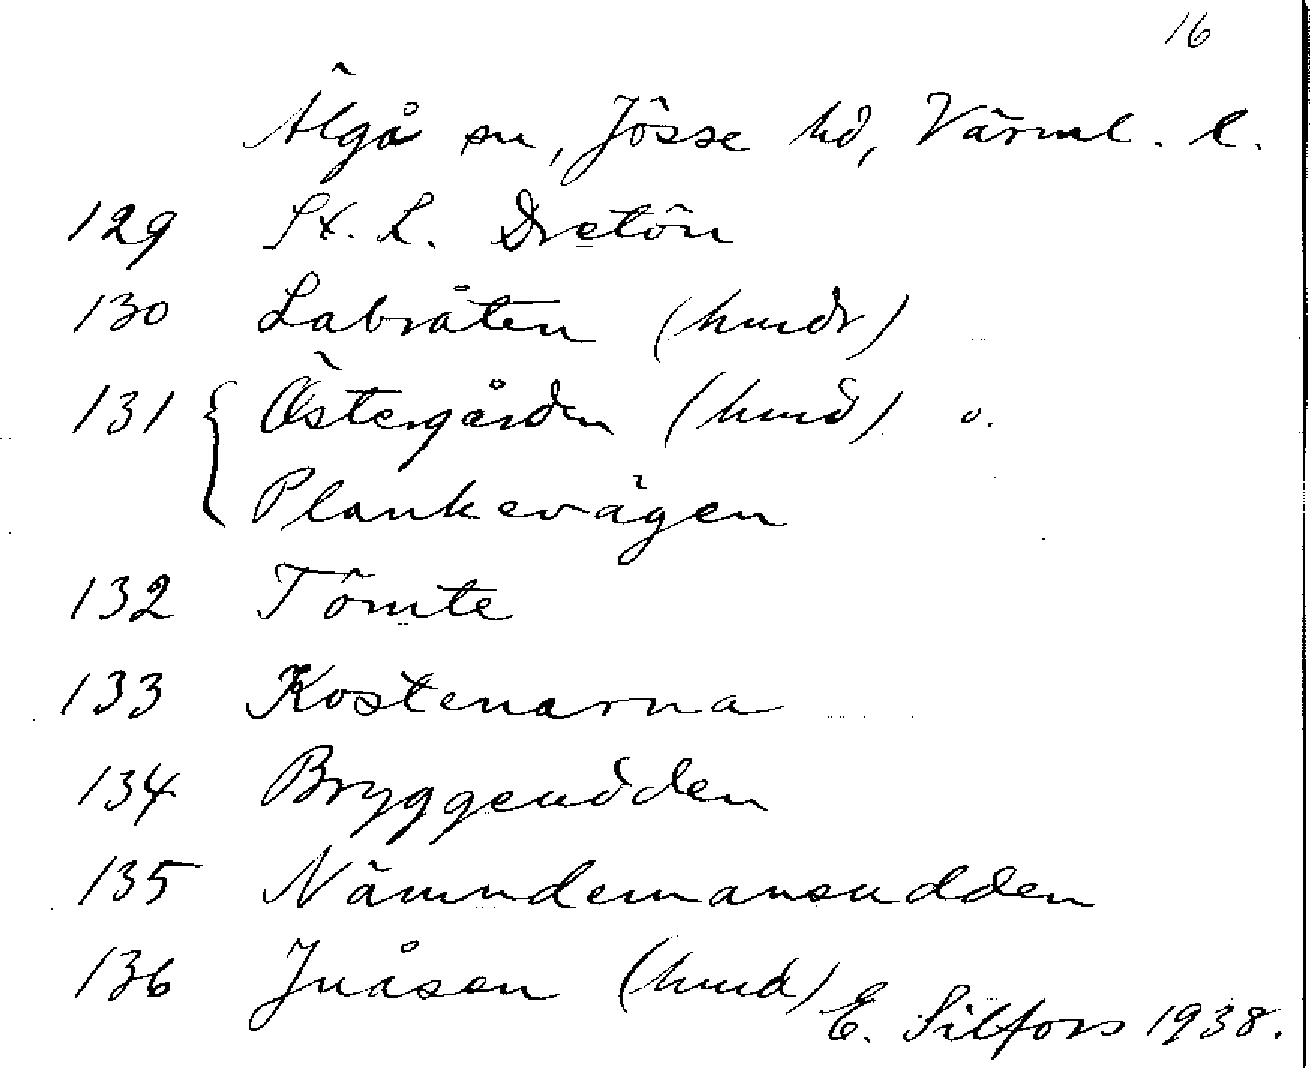 16
Älgå sn, Jösse hd, Värml. l.
129 St. L. Dretön
130 Labråten (hundr)
131 { Östergården (hund) o.
Plankevägen
132 Tömte
133 Kostenarna
134 Bryggeudden
135 Nämndemansudden
136 Juåsen (hund)
E. Silfors 1938.